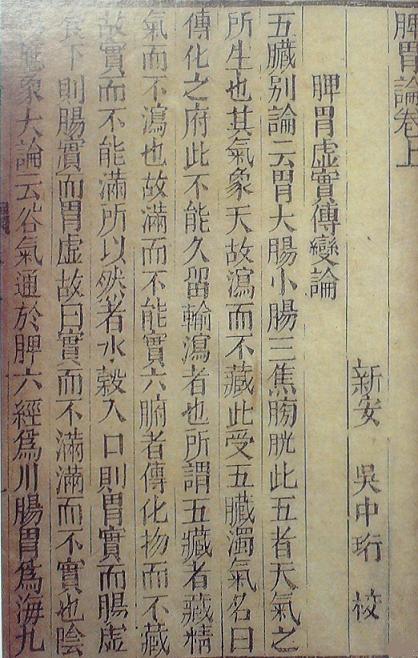 脾胃論卷上
新安 吳中珩 校
脾胃虛實傳變論
五臟别論云胃大腸小腸三焦膀胱此五者天氣之
所生也其氣象天故瀉而不藏此受五臟濁氣名曰
傳化之府此不能久留輸瀉者也所謂五臟者藏精
氣而不瀉也故滿而不能實六腑者傳化物而不藏
故實而不能滿所以然者水榖入口則胃實而腸虛
食下則腸實而胃虛故曰實而不滿滿而不實也陰
象大論云谷氣通於脾六經爲川腸胃爲海九